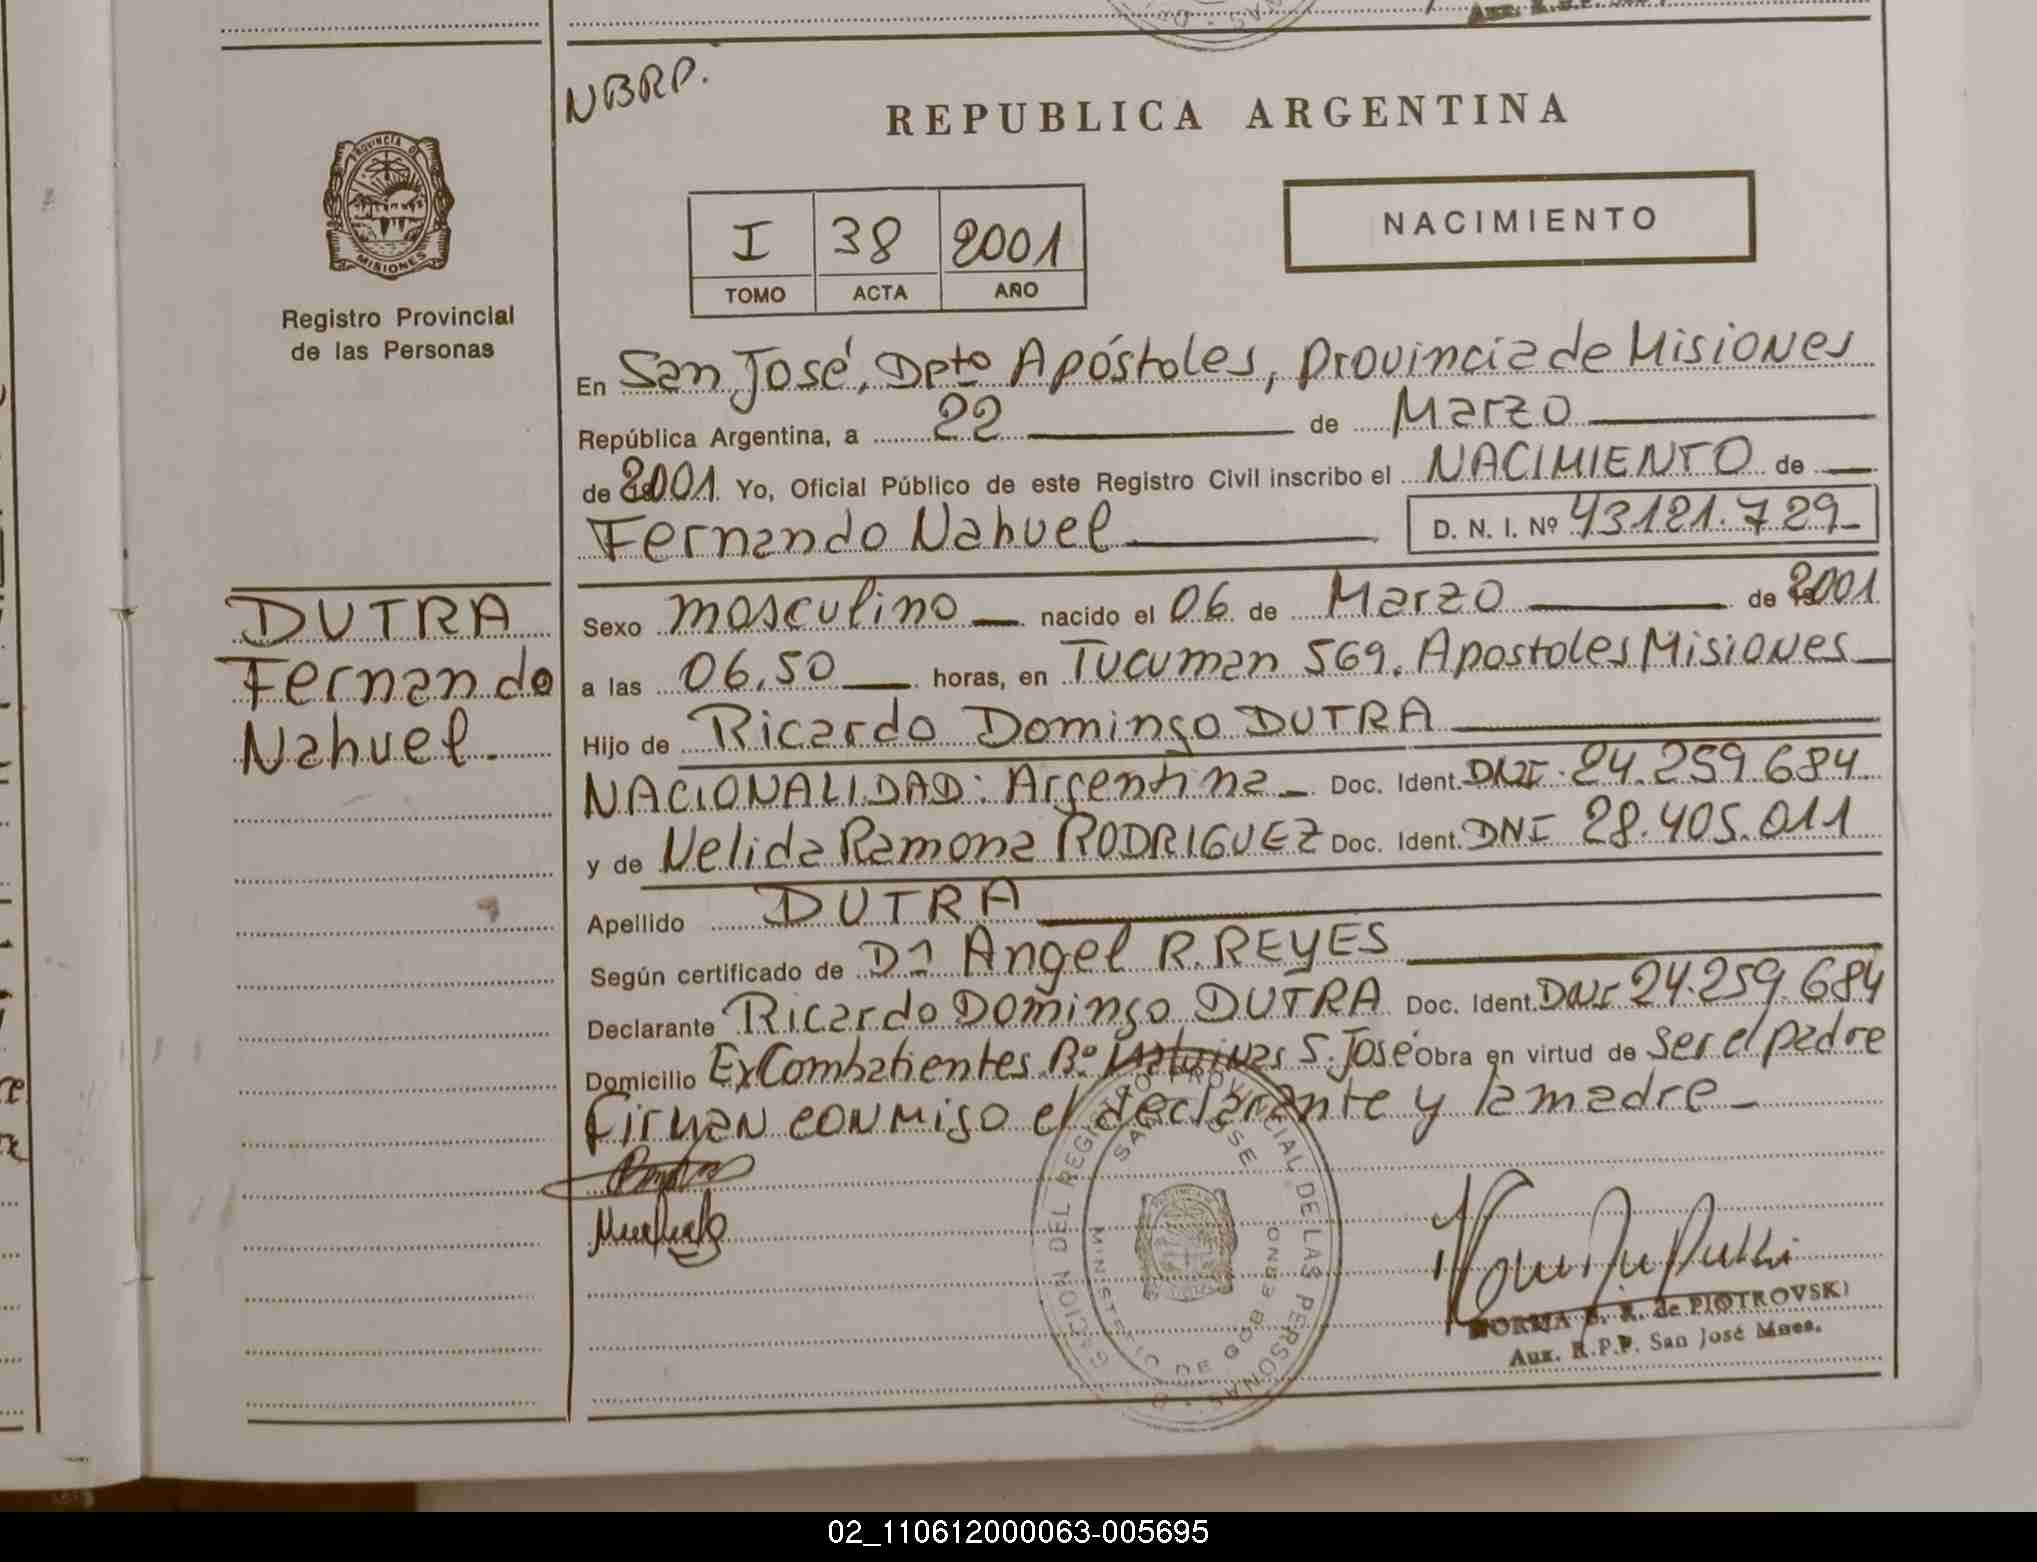 NBRP.
REPUBLICA ARGENTINA
PROVINCIA DE
MISIONES
Registro Provincial
de las Personas
I 38 2001
TOMO ACTA AÑO
NACIMIENTO
En San José, Dpto Apóstoles, Provincia de Misiones
República Argentina, a 22 de Marzo
de 2001. Yo, Oficial Público de este Registro Civil inscribo el NACIMIENTO de
Fernando Nahuel D. N. I. Nº 43121.729
DUTRA
Fernando
Nahuel.
Sexo masculino nacido el 06 de Marzo de 2001
a las 06,50 horas, en Tucuman 569. Apostoles Misiones
Hijo de Ricardo Domingo DUTRA
NACIONALIDAD: Argentina Doc. Ident. DNI. 24.259.684
y de Nelida Ramona RODRIGUEZ Doc. Ident. DNI 28.405.011
Apellido DUTRA
Según certificado de Angel R. REYES
Declarante Ricardo Domingo DUTRA Doc. Ident. DNI 24.259.684
Domicilio ExCombatientes Bº Malvinas S. José Obra en virtud de ser el padre
Firman conmigo el declarante y la madre
DEL REGISTRO PROVINCIAL DE LAS PERSONAS
SAN JOSE
MINISTERIO DE GOBIERNO
NORMA B. R. de PIOTROVSKI
Aux. R.P.P. San José Mnes.
02_110612000063-005695